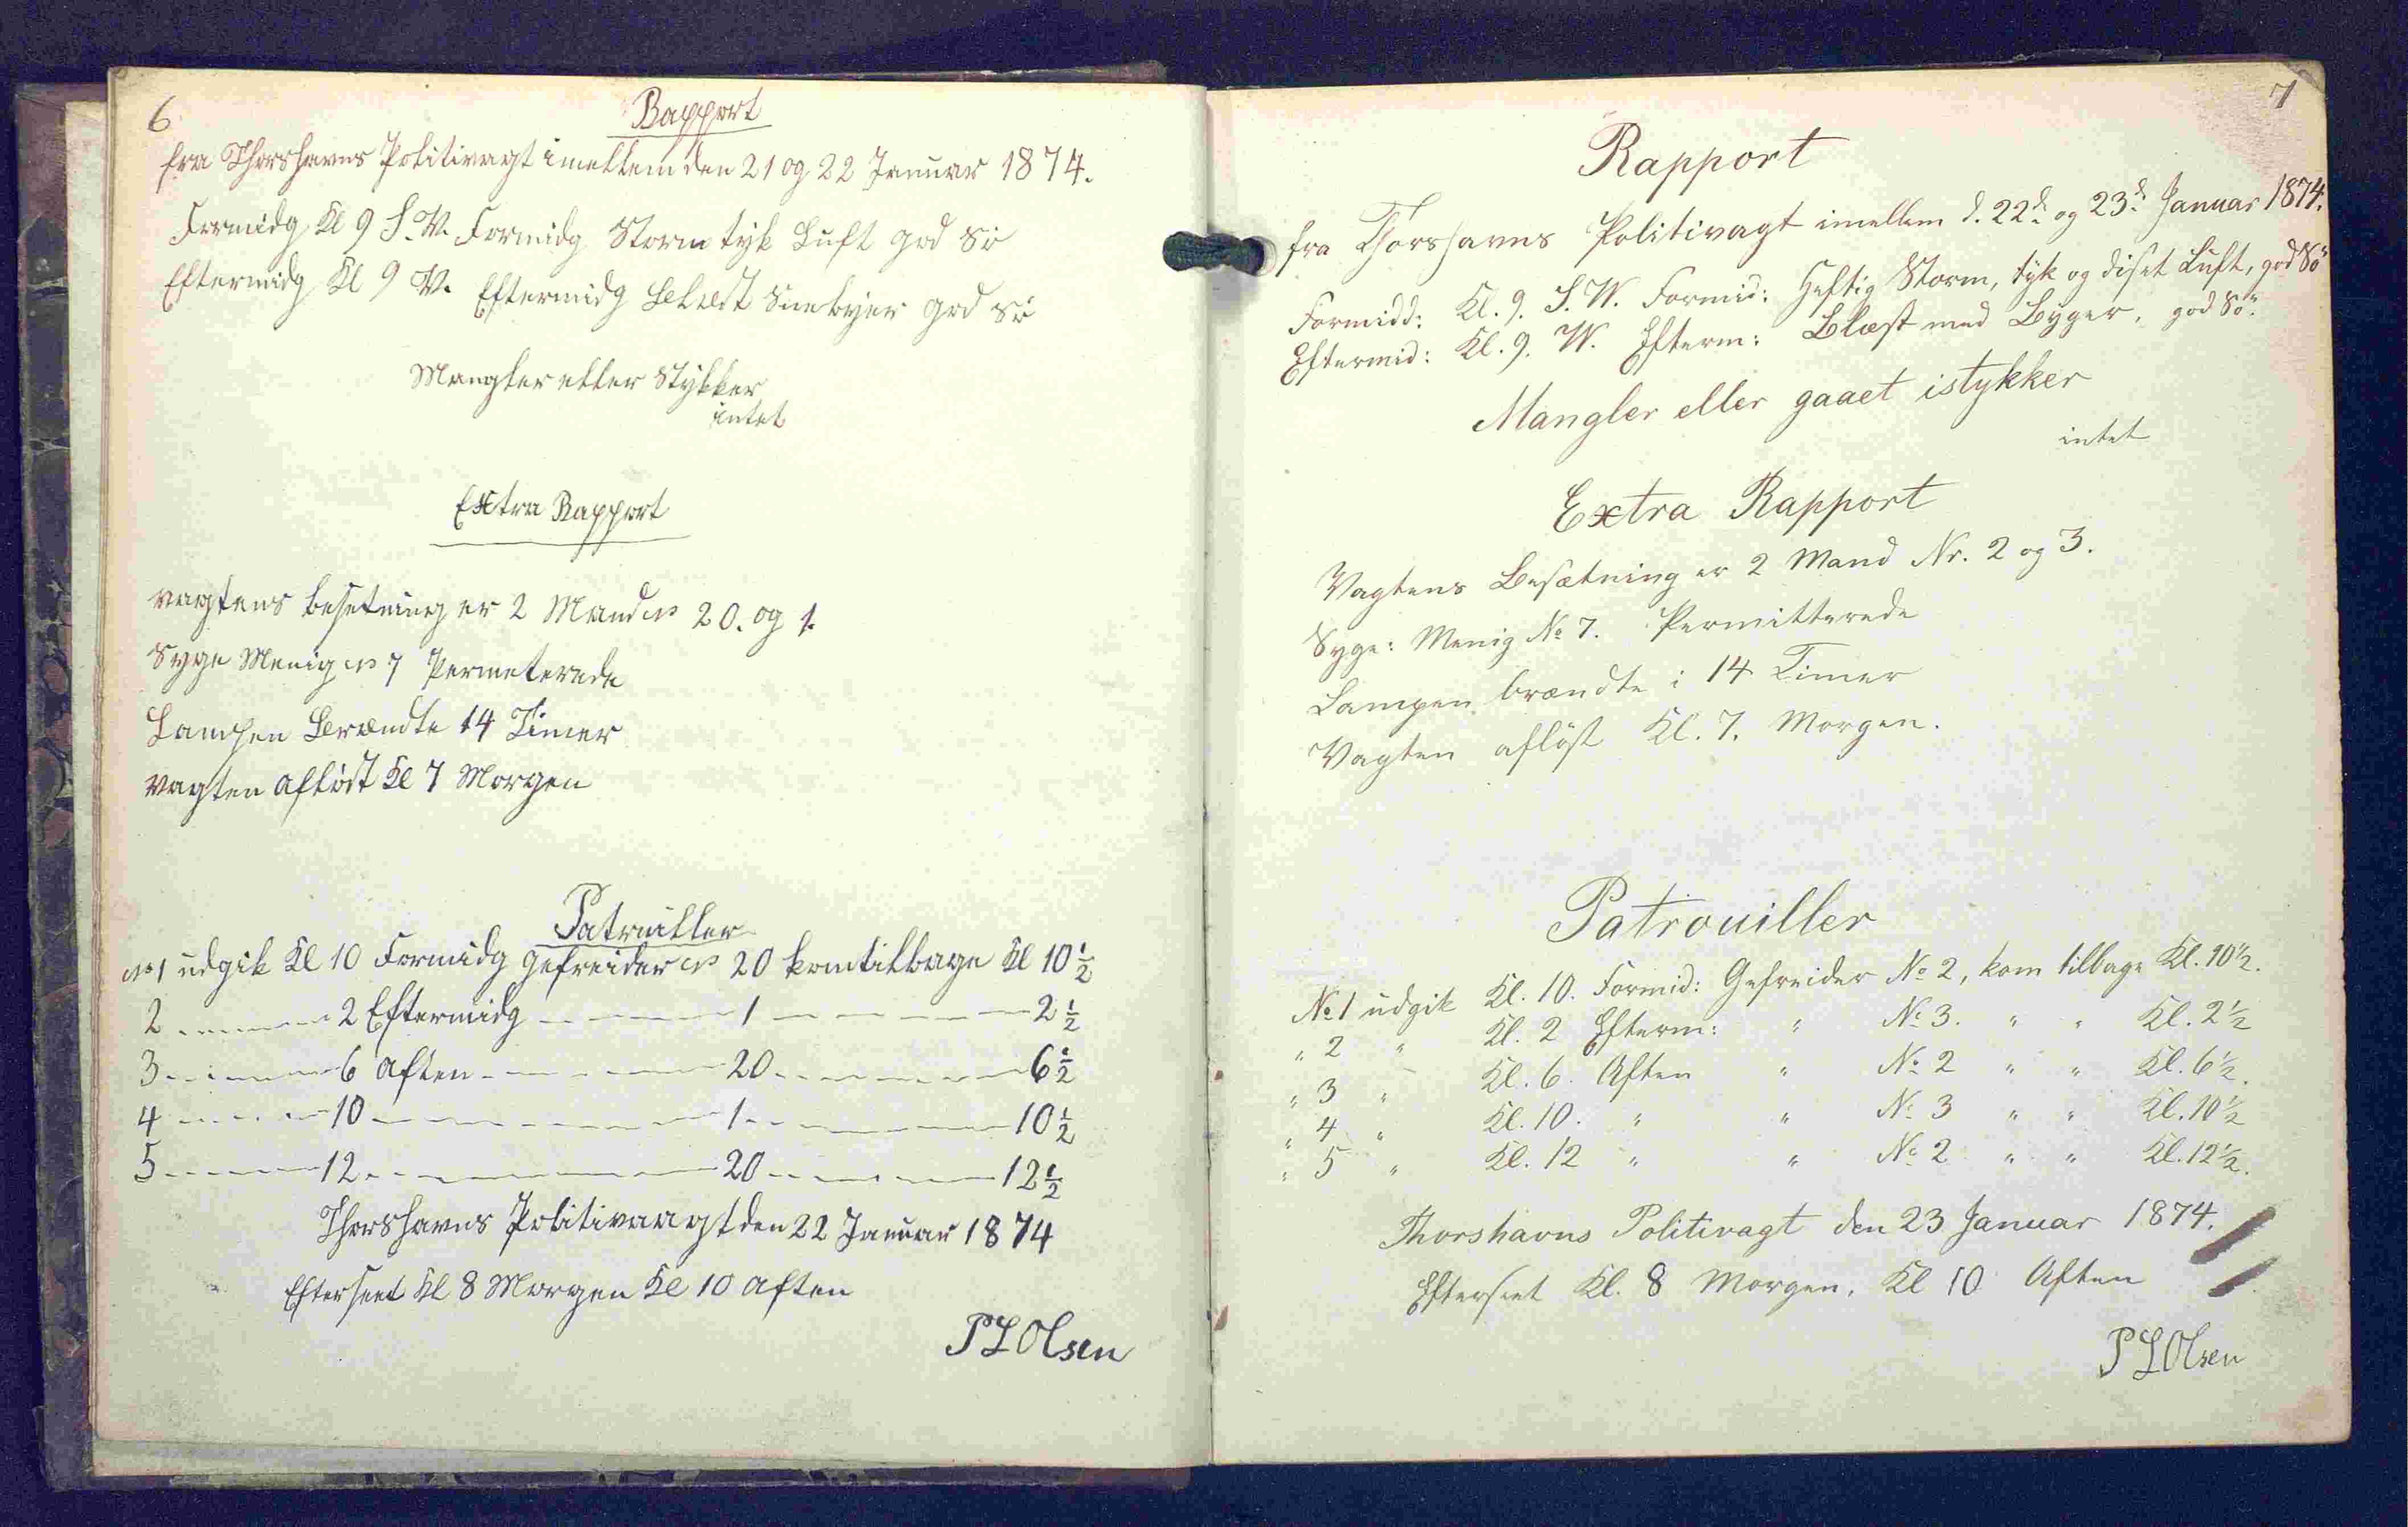 6
Rapport
fra Thorshavns Politivagt imellem den 21 og 22 Januar 1874.
Formidg Kl 9 S.V. Formidg Storm tyk Luft god Sö
Eftermidg Kl 9 V. Eftermidg Belæst Snebyer god Sö
Mangler eller Stykker
intet
Extra Rapport
vagtens besetning er 2 Mand No 20. og 1.
Syge Menig No 7 Permeterede
Lampen Brændte 14 Timer
vagten aflöst Kl 7 Morgen
Patruiller
No 1 udgik Kl 10 Formidg gefreider No 20 kom tilbage Kl 10 1/2
2 --- 2 Eftermidg --- 1 --- 2 1/2
3 --- 6 Aften --- 20 --- 6 1/2
4 --- 10 --- 1 --- 10 1/2
5 --- 12 --- 20 --- 12 1/2
Thorshavns Politivaagt den 22 Januar 1874
Efterseet Kl 8 Morgen Kl 10 Aften
P L Olsen
7
Rapport
fra Thorshavns Politivagt imellem d. 22d. og 23d. Januar 1874.
Formidd: Kl. 9. S.W. Formid: Heftig Storm, tyk og diset Luft, god Sö
Eftermid: Kl. 9. W. Efterm: Blæst med Byger, god Sö.
Mangler eller gaaet istykker
intet
Extra Rapport
Vagtens Besætning er 2 Mand Nr. 2 og 3.
Syge: Menig No 7. Permitterede
Lampen brændte i 14 Timer
Vagten aflöst Kl. 7. Morgen.
Patrouiller
No 1 udgik Kl. 10. Formid: Gefreider No 2, kom tilbage Kl. 10 1/2.
" 2 " Kl. 2 Efterm: " No 3. " " Kl. 2 1/2
" 3 " Kl. 6. Aften " No 2 " " Kl. 6 1/2.
" 4 " Kl. 10. " " No 3 " " Kl. 10 1/2
" 5 " Kl. 12 " " No 2 " " Kl. 12 1/2.
Thorshavns Politivagt den 23 Januar 1874.
Efterseet Kl. 8 Morgen, Kl 10 Aften
P L Olsen